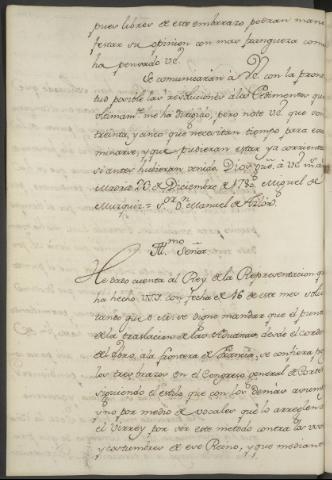 pues libres de este embarazo podran mani
festar su opinion con mas franqueza como
ha pensado VE.
Se comunicarán à VE. con la pron
titud posible las resoluciones á los Pedimentos que
ultimamte. me ha dirigido, pero note VE. que son
treinta, y cinco que necesitan tiempo para exa
minarse, y que pudieran estar ya corrientes
si antes hubieran venido. Dios gue. á VE. ms. as.
Madrid 20 de Diciembre de 1780. Miguel de
Muzquiz = Sor. Dn. Manuel de Azlor.
Illmo. Señor
He dado cuenta al Rey de la Representacion que
ha hecho V.S.I. con fecha de 16 de este mes solici
tando que S.M. se digne mandar que el punto
de la traslacion de las Aduanas desde el cordon
de Ebro, á la frontera de Francia, se confiera por
los tres brazos en el Congreso general de Cortes
siguiendo el estilo que con los demás asuntos
y no por medio de vocales que lo arreglen con
el Virrey por ser este método contra los usos
y costumbres de ese Reino, y que mediante